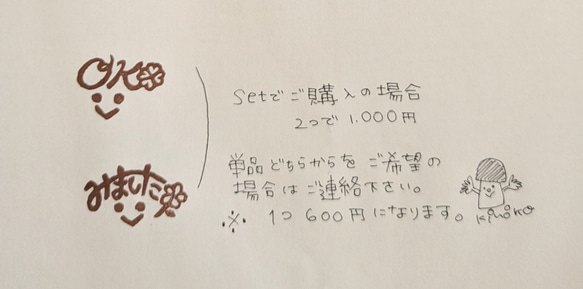 OK
みました
setでご購入の場合
2つで 1.000円
単品どちらからをご希望の
場合はご連絡下さい。
※ 1つ 600円になります。
kinoko